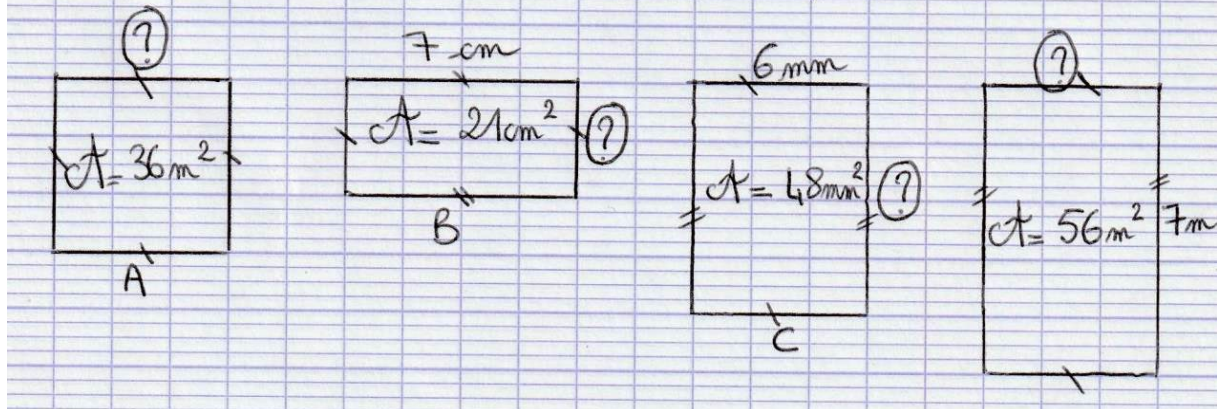 ?
𝒜 = 36 m²
A
7 cm
𝒜 = 21 cm²
?
B
6 mm
𝒜 = 48 mm²
?
C
?
𝒜 = 56 m²
7 m